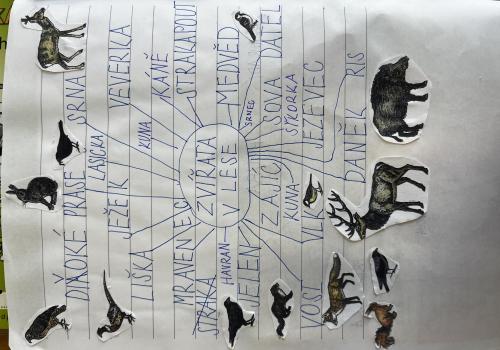 DIVOKÉ PRASE SRNA
LASIČKA
JEŽEK VEVERKA
LIŠKA KUNA KÁNĚ
MRAVENEC STRAKAPOUD
STRAKA ZVÍŘATA
HAVRAN V LESE MEDVĚD
JELEN SRNEC
ZAJÍC SOVA DATEL
KUNA SÝKORKA
VLK JEZEVEC
DANĚK RIS